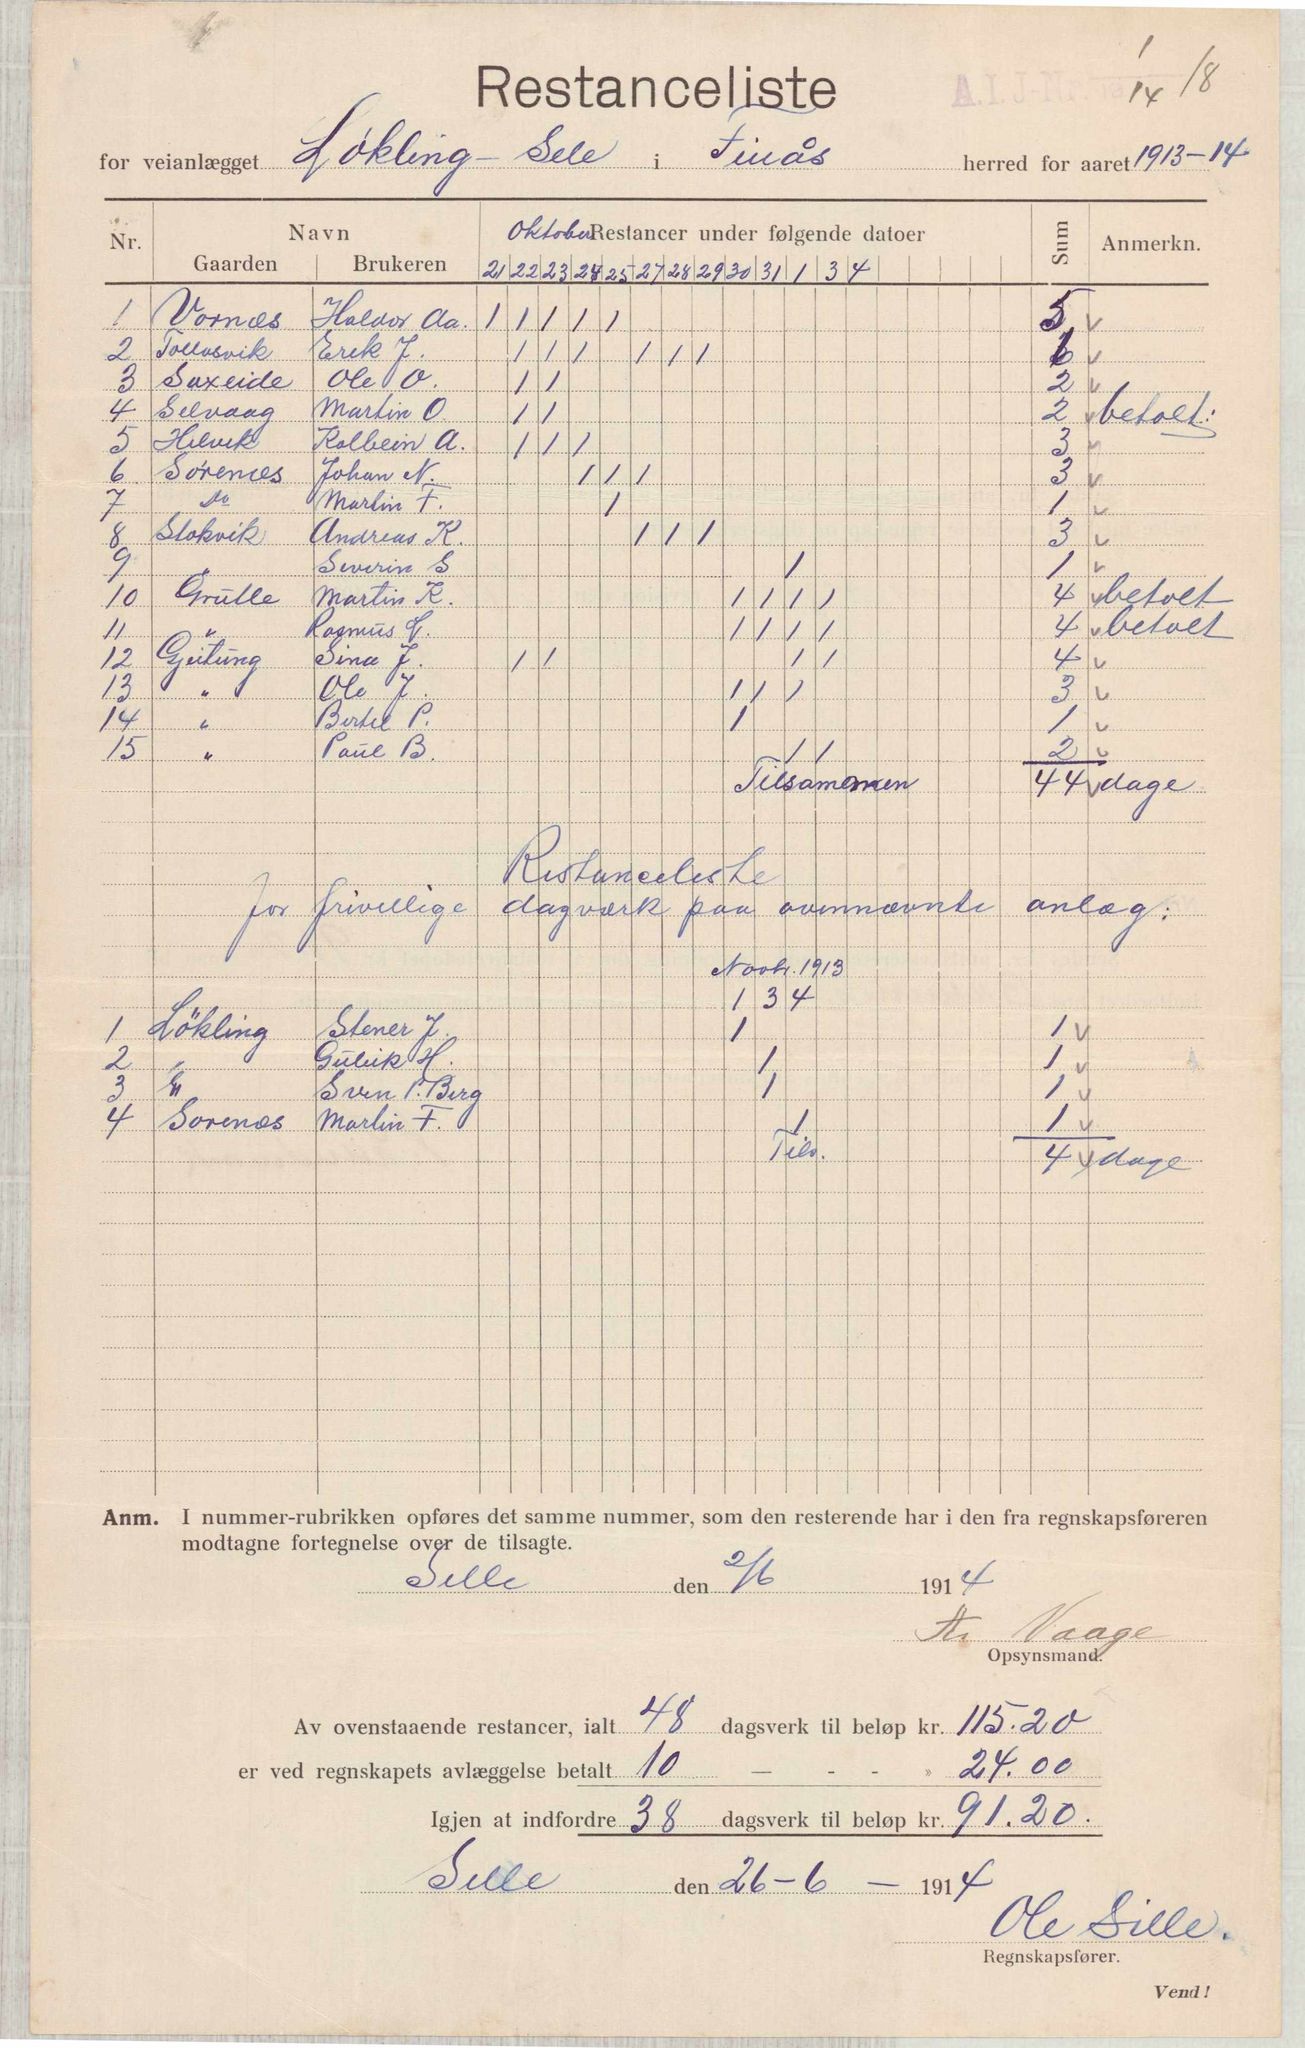 1
14/8
A.I.J-Nr.
Restanceliste
for veianlægget Løkling - Sele i Finås herred for aaret 1913-14
Nr. Navn Oktober Restancer under følgende datoer Sum Anmerkn.
Gaarden Brukeren 21 22 23 24 25 27 28 29 30 31 1 3 4
1 Vornæs Haldor Aa. 1 1 1 1 1 5 v
2 Tollevsvik Erik J. 1 1 1 1 1 1 6 v
3 Saxeide Ole O. 1 1 2 v
4 Selvaag Martin O 1 1 2 v betalt:
5 Hilvik Kolbein A. 1 1 1 3 v
6 Sørenæs Johan N. 1 1 1 3 v
7 do Martin F. 1 1 v
8 Stokvik Andreas K. 1 1 1 3 v
9 " Severin S 1 1 v
10 Grutle Martin K. 1 1 1 1 4 v betalt
11 " Rasmus L. 1 1 1 1 4 v betalt
12 Gjeitung Sina J. 1 1 1 1 4 v
13 " Ole J. 1 1 1 3 v
14 " Bertel P. 1 1 v
15 " Paul B. 1 1 2 v
Tilsammen 44 v dage
Restanceliste
for frivillige dagværk paa ovennævnte anlæg:
Novbr. 1913
1 3 4
1 Løkling Stener J. 1 1 v
2 " Gulik H. 1 1 v
3 " Sven P. Berg 1 1 v
4 Sørenæs Martin F. 1 1 v
Tils. 4 v dage
Anm. I nummer-rubrikken opføres det samme nummer, som den resterende har i den fra regnskapsføreren
modtagne fortegnelse over de tilsagte.
Selle den 2/6 1914
Vaage
Opsynsmand.
Av ovenstaaende restancer, ialt 48 dagsverk til beløp kr. 115.20
er ved regnskapets avlæggelse betalt 10 — - - » 24.00
Igjen at indfordre 38 dagsverk til beløp kr. 91.20.
Selle den 26-6 — 1914
Ole Sille.
Regnskapsfører.
Vend!